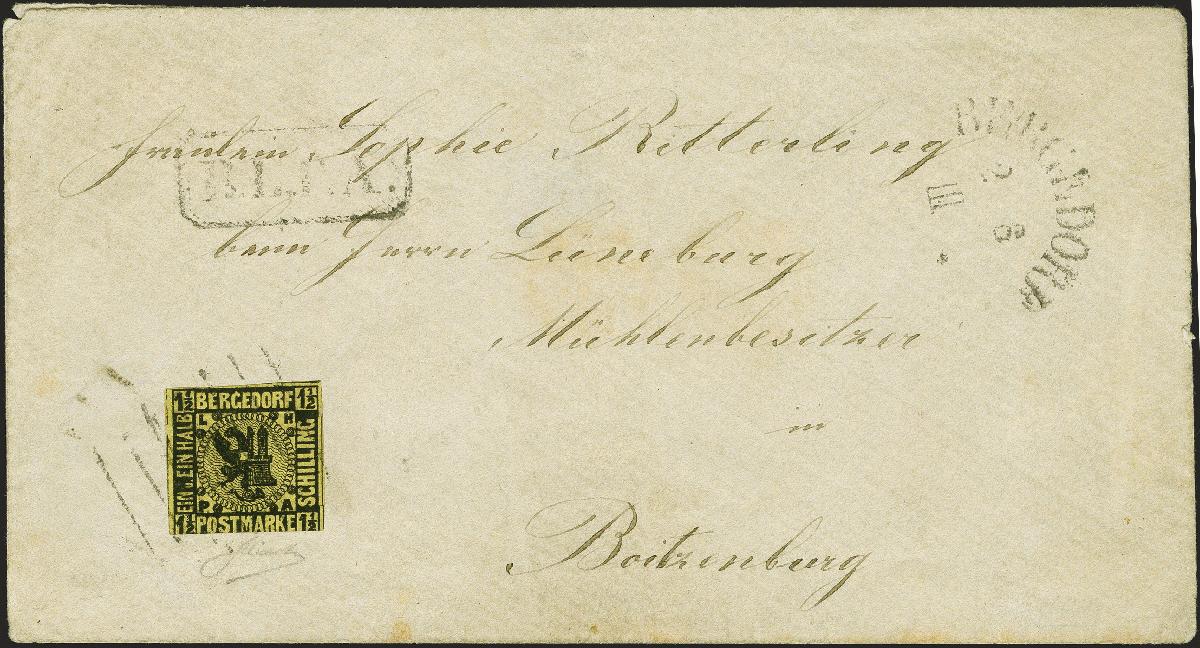 Fräulein Sophie Ritterling
beim Herrn Lüneburg
Mühlenbesitzer
in
Boitzenburg
BERGEDORF
III
B.L.P.A.
1½ BERGEDORF 1½
EIN U. EIN HALB
L H
SCHILLING
P A
1½ POSTMARKE 1½